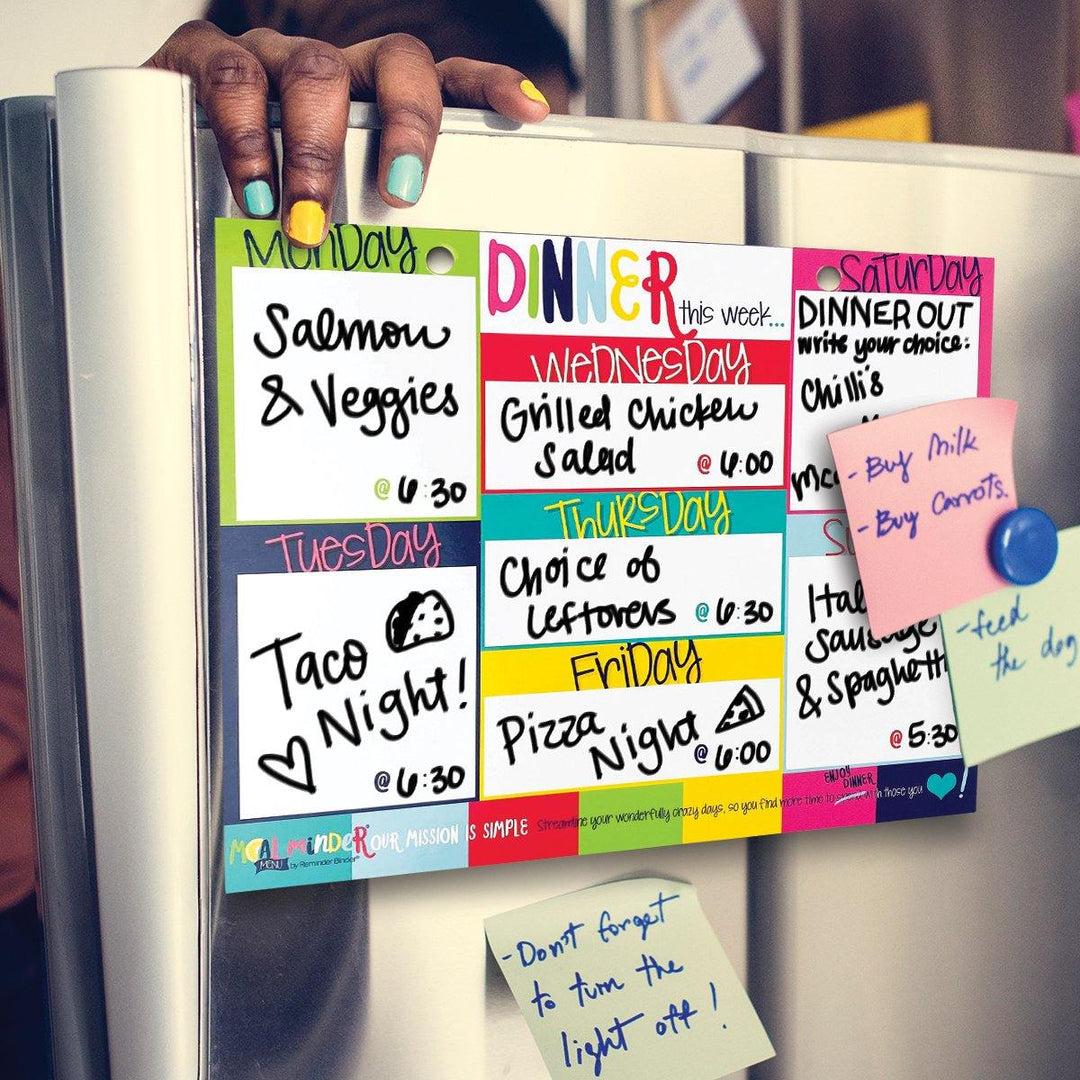 Monday
Salmon
& Veggies
@ 6:30
Tuesday
Taco
Night!
@ 6:30
DINNER
this week...
Wednesday
Grilled Chicken
Salad @ 6:00
Thursday
Choice of
Leftovers @ 6:30
Friday
Pizza
Night
@ 6:00
Saturday
DINNER OUT
write your choice:
Chilli's
Sausage
& Spaghetti
@ 5:30
- Buy Milk
- Buy Carrots.
- feed
the dog
MealMinder
MENU
by Reminder Binder®
OUR MISSION IS SIMPLE
Streamline your wonderfully crazy days, so you find more time to with those you !
ENJOY
DINNER
- Don't forget
to turn the
light off!